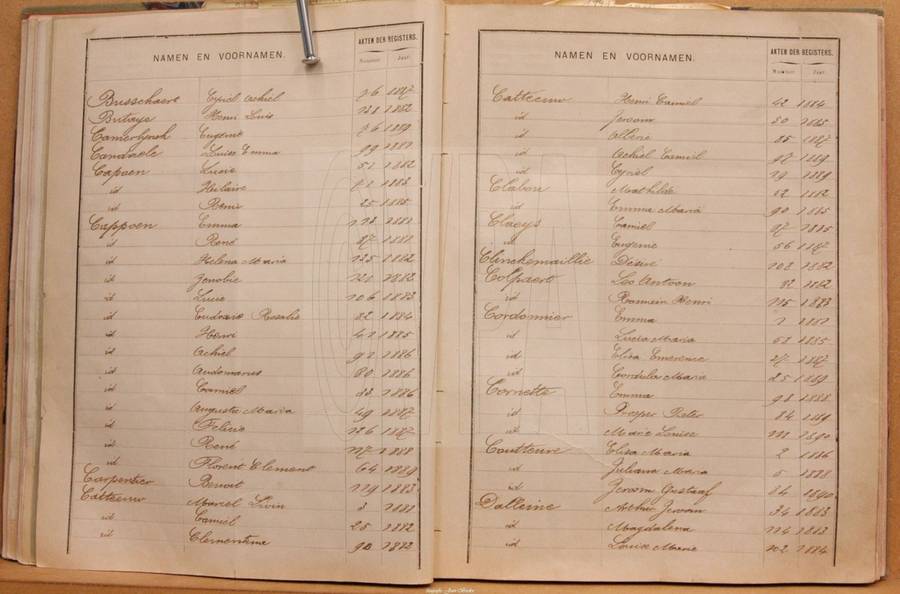 NAMEN EN VOORNAMEN. AKTEN DER REGISTERS.
Nummer Jaar
Busschaert Cyriel Achiel 76 1887
Butaye Henri Louis 131 1882
Camerlynck Eugenie 76 1889
Candaele Luise Emma 99 1881
Capoen Lucie 51 1882
id Hilaire 71 1883
id Remi 25 1885
Cappoen Emma 1881
id René 87 1881
id Helena Maria 125 1882
id Zenobie 120 1882
id Lucie 106 1883
id Eudoxie Rosalie 82 1884
id Henri 41 1885
id Achiel 92 1886
id Audomarus 80 1886
id Camiel 1886
id Augusta Maria 49 1887
id Felicie 126 1887
id René 117 1888
id Florent Clement 64 1889
Carpentier Benoit 119 1883
Catteeuw Marcel Livin 3 1881
id Camiel 25 1882
id Clementine 90 1882
NAMEN EN VOORNAMEN. AKTEN DER REGISTERS.
Nummer Jaar
Catteeuw Henri Camiel 42 1884
id Jeroom 30 1885
id 85 1887
id Achiel Camiel 97 1889
id Cyriel 19 1889
Clabou Mathilde 52 1882
id Emma Maria 90 1885
Claeys Camiel 97 1885
id Eugenie 56 1887
Clinckemaillie Desiré 108 1882
Colpaert Leo Antoon 82 1882
id Romain Henri 115 1883
Cordonnier Emma 1 1881
id Lucia Maria 58 1885
id Elisa Emerence 27 1887
id Cordula Maria 25 1889
Cornette Emma 98 1888
id Prosper Pieter 84 1889
id Marie Louise 111 1890
Coutteure Elisa Maria 2 1886
id Juliana Maria 5 1888
id Jeroom Gustaaf 84 1890
Dalleine Arthur Jeroom 34 1883
id Magdalena 114 1883
id Louise Marie 102 1884